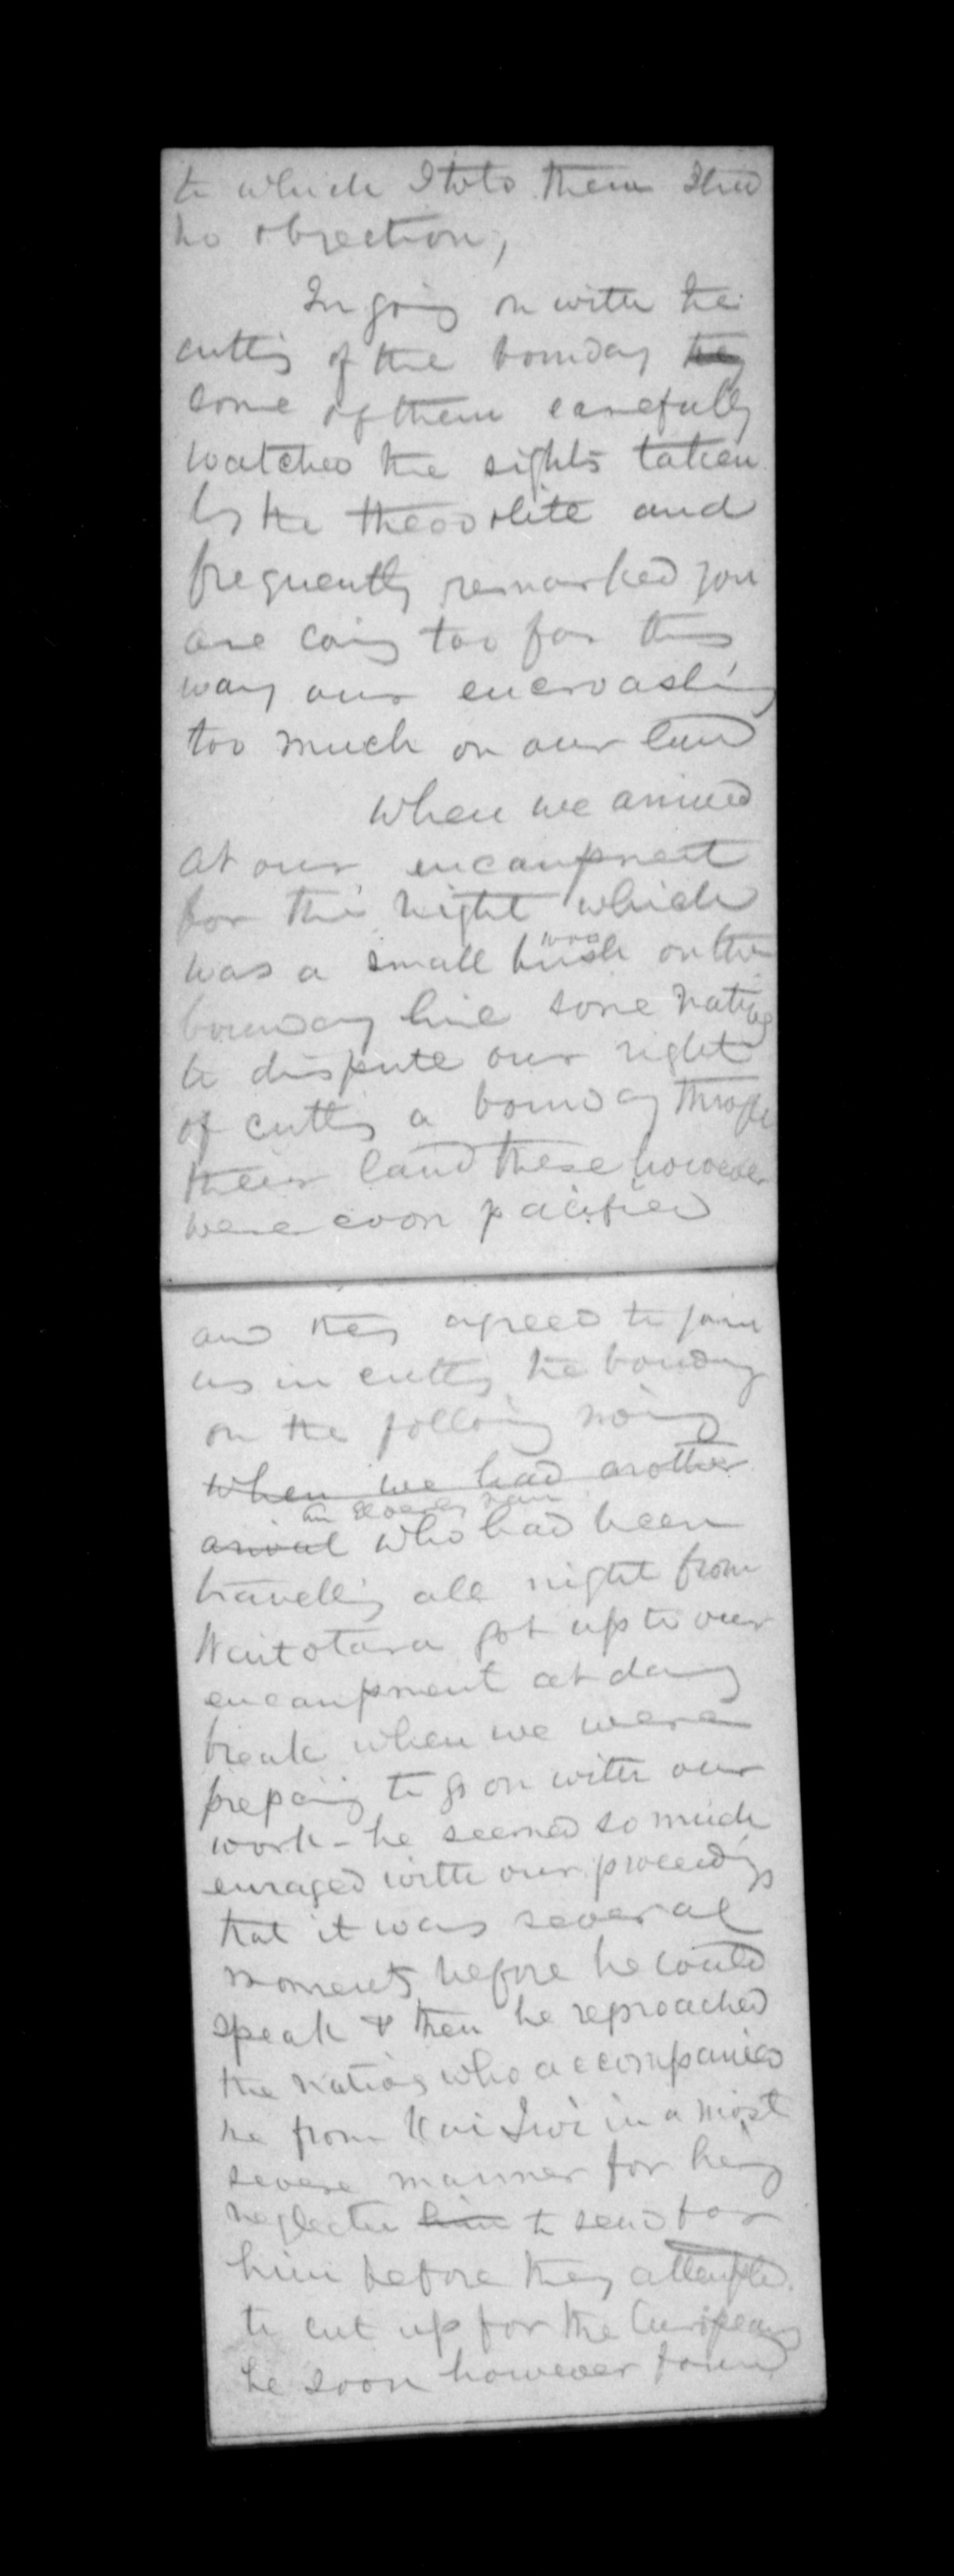 to which I told them I had
no objection,
In going on with the
cutting of the bounday they
some of them carefully
watched the sights taken
by the theodolite and
frequently remarked you
are going too far this
way our encroaching
too much on our land
When we arrived
at our encampment
for the night which
was a small bush on the
bounday line some natives
to dispute our right
of cutting a bounday through
their land these however
were soon pacified
and they agreed to join
us in cutting the bounday
on the following morning
when we had another
an elderly man
arrival who had been
travelling all night from
Waitotara got up to our
encampment at day
break when we were
preparing to go on with our
work - he seemed so much
enraged with our proceedings
that it was several
moments before he could
speak & then he reproached
the natives who accompanied
me from Kai Iwi in a most
severe manner for having
neglected him to send for
him before they attempted
to cut up for the Europeans
he soon however found